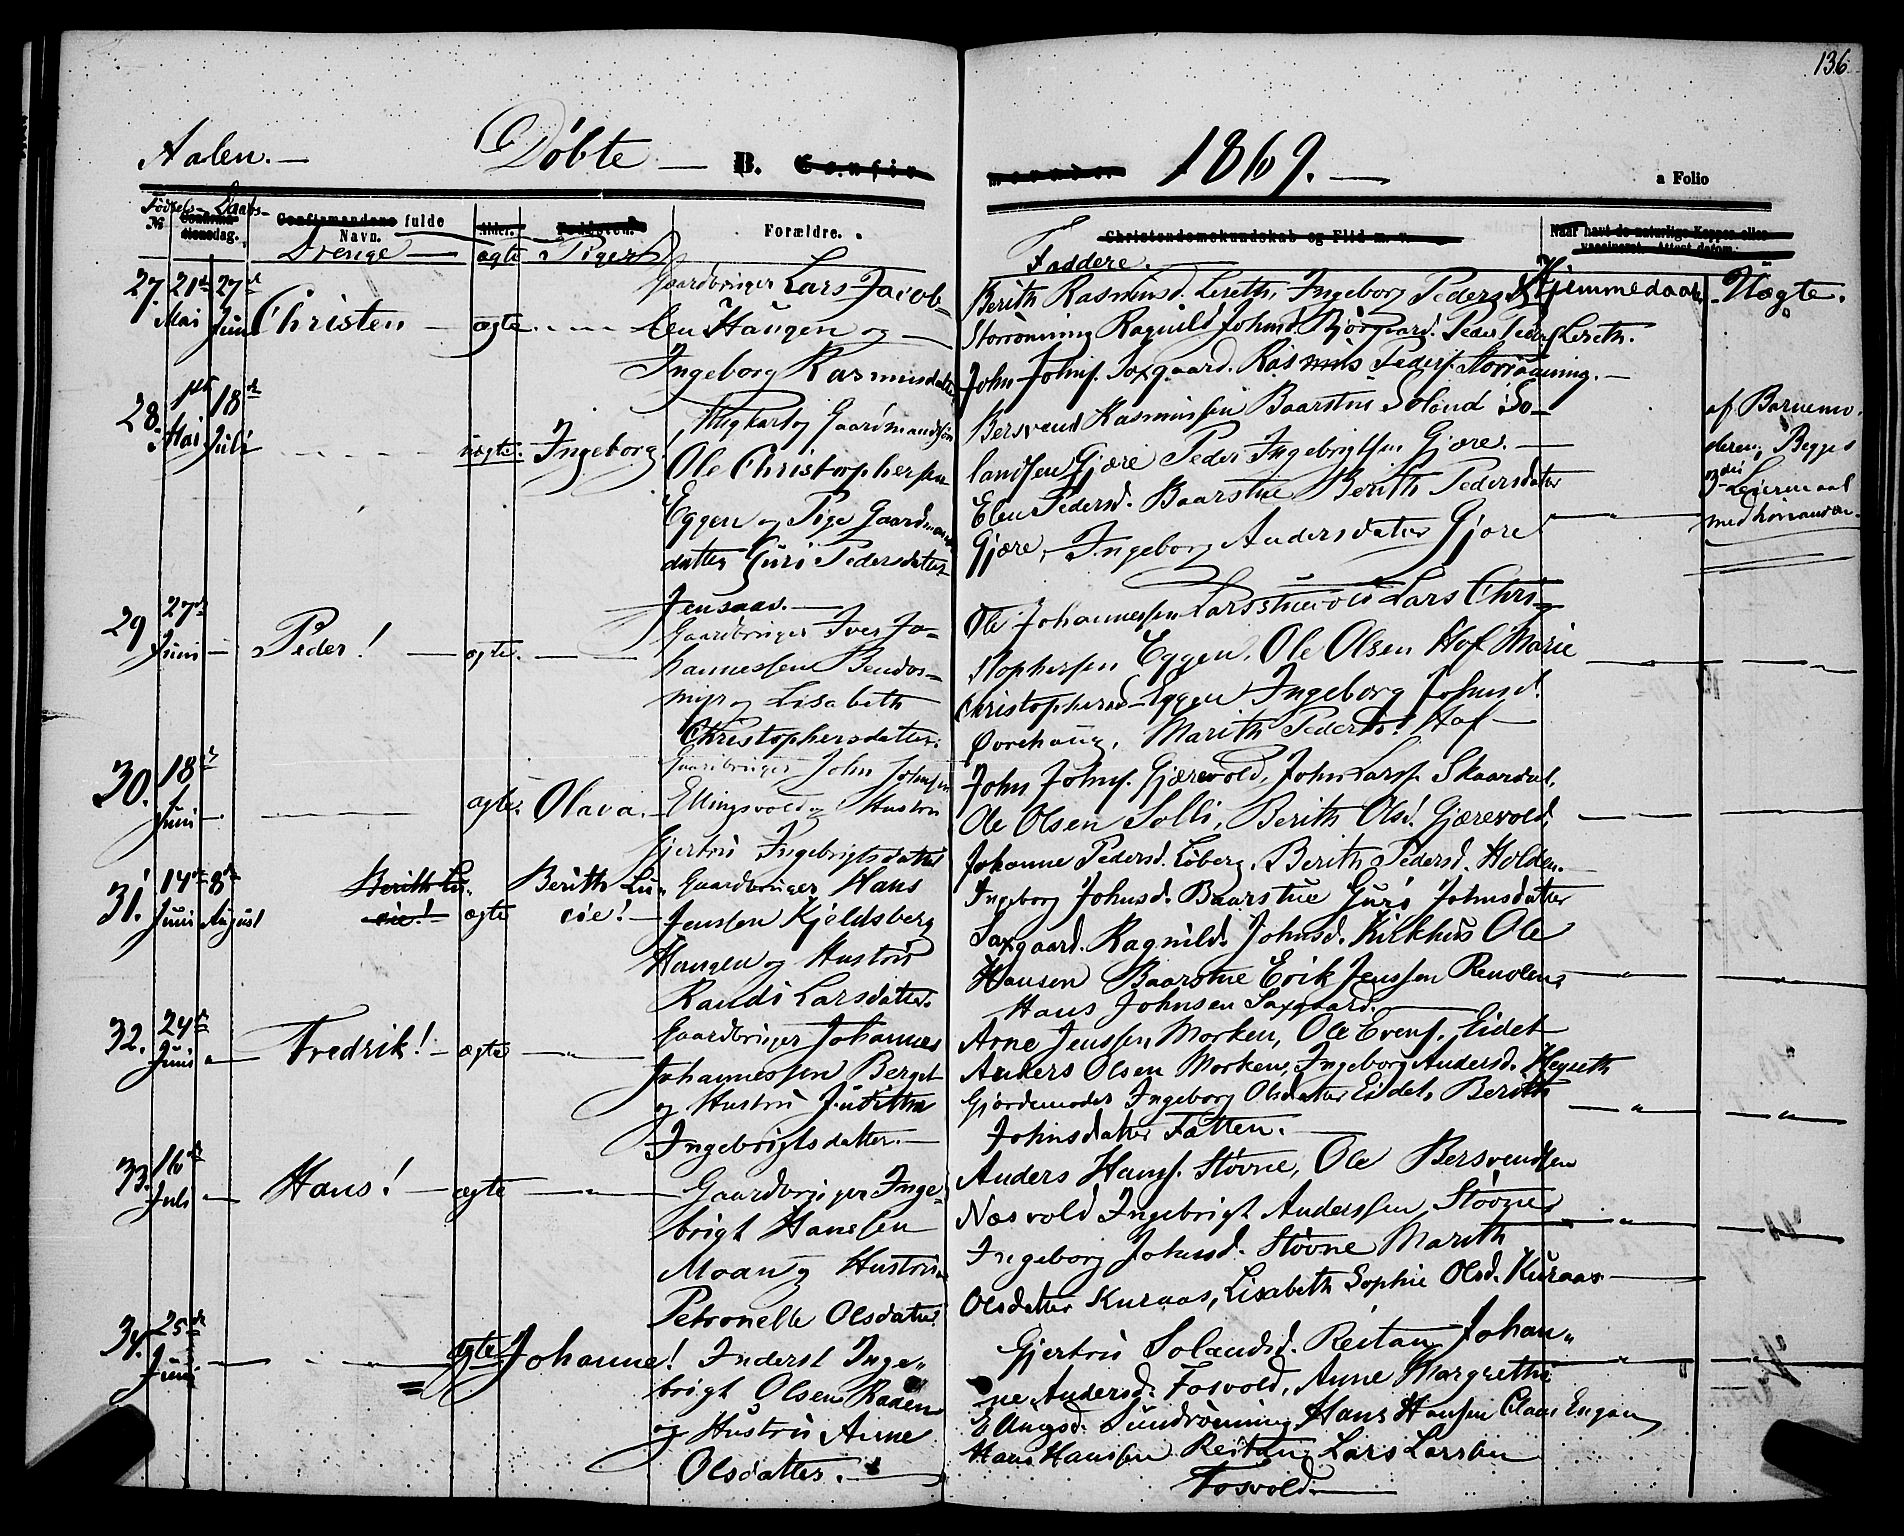 136
Aalen. — Døbte — B. Confir
mander 1869. — a Folio
Fødsels- Daabs-
№ Confirma-
tionsdag. Confirmandens fulde
Navn. Alder. Fødboven. Forældre. Christendomskundskab og Flid m. v. Naar havt de naturlige Kopper eller
vaccineret. Attest datum.
Drenge — ægte Piger Faddere. — Hjemmedaab Uægte.
27. 21de Mai 27de Juni Christen — ægte. Gaardbruger Lars Jacob-
sen Haugen og —
Ingeborg Rasmusdatter
Berith Rasmusd. Lereth, Ingeborg Pedersd.
Storrønning Ragnild Johnsd. Bjørgaard. Peder Peders. Lereth.
John Johns. Saxgaard. Rasmus Peders. Storrønning. —
28. Mai 18de Juli uægte. Ingeborg! Ungkarl og Gaardmandsøn
Ole Christophersen
Eggen og Pige Gaardmands
datter Guro Pedersdatter
Bersvend Rasmussen Baarstue Solend So-
landsen Gjære Peder Ingebrigtsen Gjære. —
Elen Pedersd. Baarstue Berith Pedersdatter
Gjære, Ingeborg Andersdatter Gjøre
af Barnemo-
deren, Begges
Leiermaal
med hinanden.
29 27de Juni — Peder! — ægte. —
Gaardbruger Iver Jo-
hannessen Bendos-
myr og Lisabeth
Christophersdatter.
Ole Johannessen Larsstuevold Lars Chri-
stophersen Eggen, Ole Olsen Hof Marie
Christophersd. Eggen Ingeborg Johnsd.
Øvrehaug, Marith Pedersd. Hof —
30. 18de Juni — ægte. Olava. — Gaardbruger John Johnsen
Ellingsvold og Hustru
Gjertru Ingebrigtsdatter
John Johns. Gjærevold, John Larss. Skaardal,
Ole Olsen Solli, Berith Olsd. Gjærevold,
Johanne Pedersd. Loberg, Berith Pedersd. Holden.
31. 14de Juni 8de August Berith Lu-
cie! — ægte Berith Lu-
cie! — Gaardbruger Hans
Jenssen Kjeldsberg
Haugen og Hustru
Randi Larsdatter.
Ingeborg Johnsd. Baarstue Guro Johnsdatter
Saxgaard. Ragnild Johnsd. Kirkhus Ole
Hansen Baarstue Erik Jenssen Renolen,
Hans Johnsen Saxgaard. —
32. 24de Juni — Fredrik! — ægte — Gaardbruger Johannes
Johannessen Berget
og Hustru Juditha
Ingebrigtsdatter. —
Arne Jenssen Morken, Ole Evens. Eidet
Anders Olsen Morken, Ingeborg Andersd. Hegseth
Gjordemoder Ingeborg Olsdatter Eidet, Berith
Johnsdatter Tatten. —
33. 16de Juli — Hans! — ægte — Gaardbruger Inge-
brigt Hanssen
Moan og Hustru
Petronelle Olsdatter
Anders Hans. Støvne, Ole Bersvendsen
Næsvold Ingebrigt Anderssen Støvne
Ingeborg Johnsd. Støvne Marith
Olsdatter Kuraas, Lisabeth Sophie Olsd. Kuraas
34. 25de Juni — ægte Johanne! Inderst Inge-
brigt Olsen Raaen
og Hustru Anne
Olsdatter. —
Gjertru Solendsd. Reitan Johan-
ne Andersd. Fosvold, Anne Margrethe
Ellingsd. Sundrønning Hans Hansen Claus Engan,
Hans Hanssen Reitan, Lars Larssen
Fosvold —